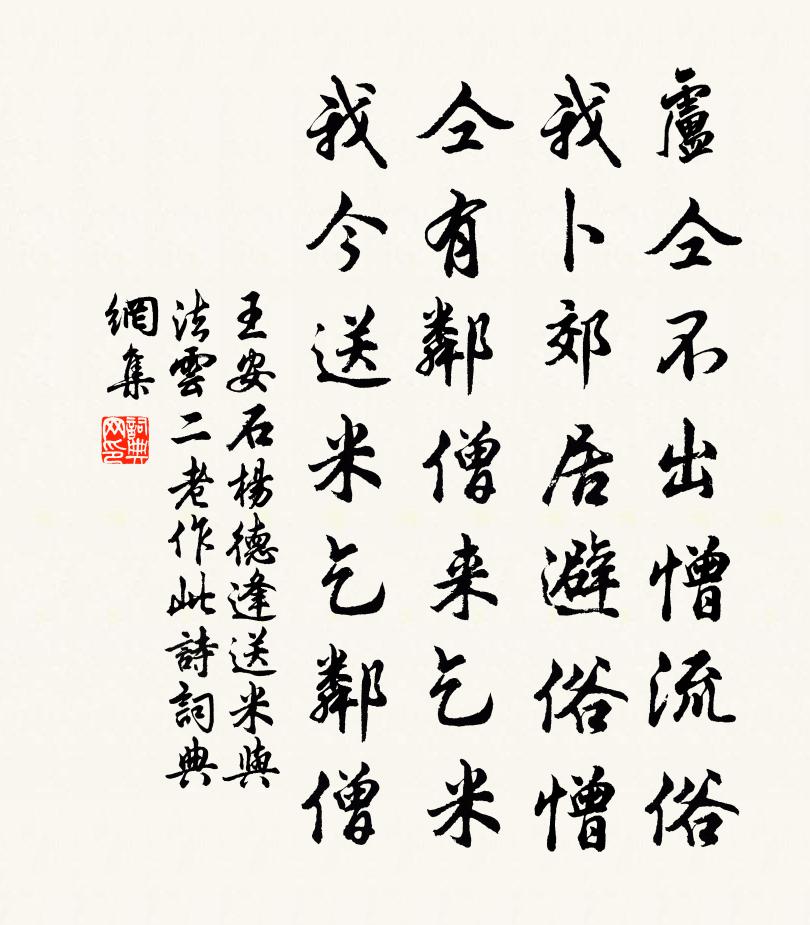 盧仝不出憎流俗
我卜郊居避俗憎
仝有鄰僧来乞米
我今送米乞鄰僧
王安石楊德逢送米與
法雲二老作此詩詞典
網集
詞典
网印